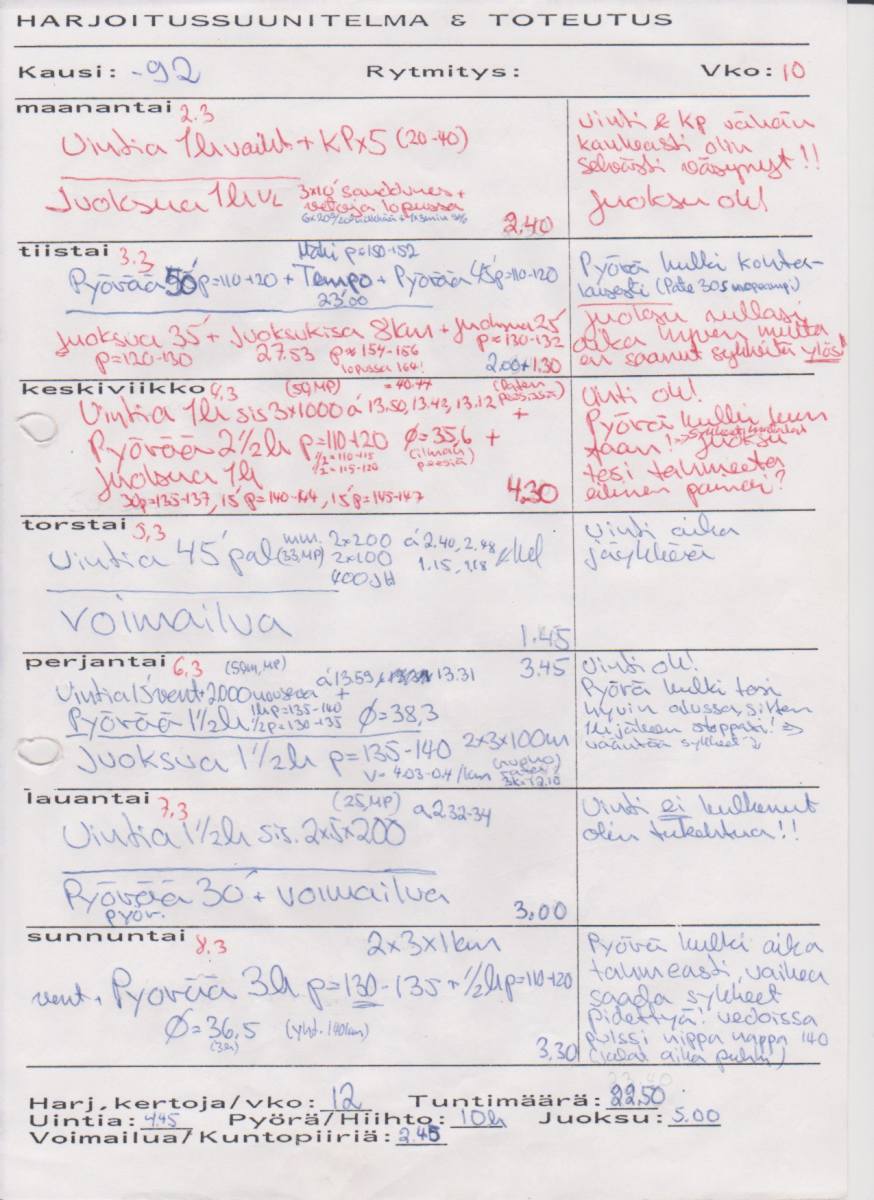 HARJOITUSSUUNITELMA & TOTEUTUS
Kausi: -92 Rytmitys: Vko: 10
maanantai 2.3
Uintia 1h vaiht + KP x 5 (20-40)
Juoksua 1h VL 3x10'
vetoja lopussa
2.40
Uinti & kp vähän
kankeasti olin
selvästi väsynyt!!
Juoksu ok!
tiistai 3.3
Mäki p=150-152
Pyörää 50' p=110-120 + Tempo + Pyörää 45' p=110-120
23.00
Juoksua 35' + Juoksukisa 8km + Juoksua 25'
p=120-130 27.53 p=154-156 p=130-132
lopussa 164!
2.00+1.30
Pyörä kulki kohta-
laisesti (Pate 305
Juoksu rullasi
aika hyvin mutta
en saanut sykkeitä ylös!
keskiviikko 4.3 (50, MP) = 40.44
Uintia 1h sis 3x1000 á 13.50, 13.42, 13.12 +
Pyörää 2 1/2h p=110-120 Ø=35,6 +
1/2=110-115 (ilman
1/2=115-120 peesiä)
Juoksua 1h
30'p=135-137, 15'p=140-144, 15'p=145-147
4.30
Uinti ok!
Pyörä kulki kun
Juoksu
tosi tahmeeta
eilinen painoi?
torstai 5.3
Uintia 45' pal (33, MP) mm. 2x200 á 2.40, 2.48
2x100 1.15, 1.18
400 JH
Voimailua
1.45
Uinti aika
jäykkänä
perjantai 6.3 (50m, MP) 3.45
Uintia 15'vent + 2000 nousevaa + á 13.59 13.31
Pyörää 1 1/2h 1h p=135-140 Ø=38,3
1/2 p=130-135
Juoksua 1 1/2h p=135-140 2x3x100m
v=4.03-04/km
Uinti ok!
Pyörä kulki tosi
hyvin alussa, sitten
1h jälkeen stoppasi! =>
vääntää sykkeet
lauantai 7.3 (25, MP)
Uintia 1 1/2h sis. 2x5x200 á 2.32-34
Pyörää 30' + voimailua
pyör.
3.00
Uinti ei kulkenut
olin tukehtua!!
sunnuntai 8.3 2x3x1km
vent + Pyörää 3h p=130-135 + 1/2h p=110-120
Ø=36.5 (yht. 140km)
(3h)
3.30
Pyörä kulki aika
tahmeasti, vaikea
saada sykkeet
pidettyä! vedoissa
pulssi nippa nappa 140
(jalat aika puhki)
Harj.kertoja/vko: 12 Tuntimäärä: 22.50
Uintia: 4.45 Pyörä/Hiihto: 10h Juoksu: 5.00
Voimailua/Kuntopiiriä: 2.45